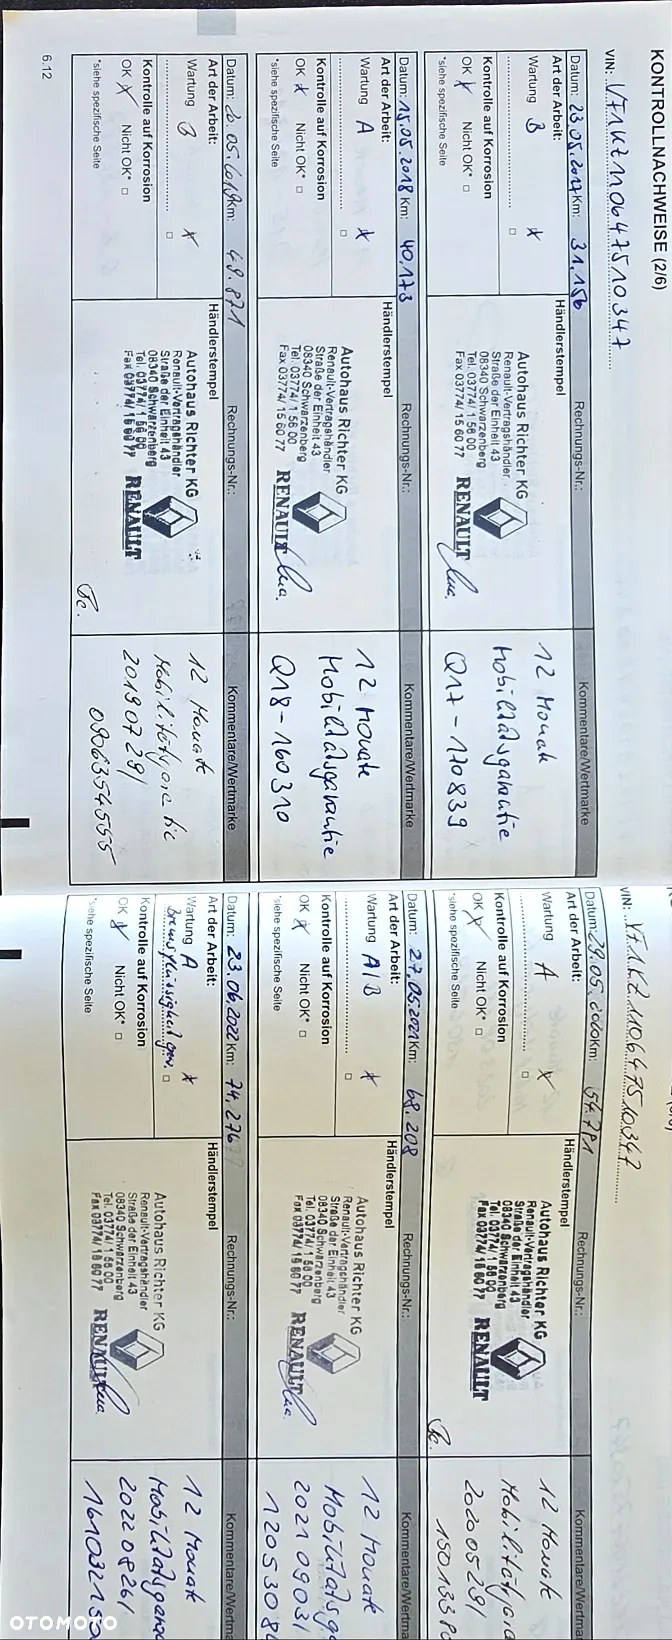 KONTROLLNACHWEISE (2/6)
VIN: VF1KZ110647510347
Datum: 23.05.2017 Km: 31.156 Rechnungs-Nr.: Kommentare/Wertmarke
Art der Arbeit:
Wartung B x
Kontrolle auf Korrosion
OK x Nicht OK* □
*siehe spezifische Seite
Händlerstempel
Autohaus Richter KG
Renault-Vertragshändler
Straße der Einheit 43
08340 Schwarzenberg
Tel. 03774/ 1 56 00
Fax 03774/ 15 60 77
RENAULT
12 Monate
Mobilitätsgarantie
Q17-170839
Datum: 15.05.2018 Km: 40.173 Rechnungs-Nr.: Kommentare/Wertmarke
Art der Arbeit:
Wartung A x
Kontrolle auf Korrosion
OK x Nicht OK* □
*siehe spezifische Seite
Händlerstempel
Autohaus Richter KG
Renault-Vertragshändler
Straße der Einheit 43
08340 Schwarzenberg
Tel. 03774/ 1 56 00
Fax 03774/ 15 60 77
RENAULT
12 Monate
Mobilitätsgarantie
Q18-160310
Datum: 20.05.2019 Km: 48.871 Rechnungs-Nr.: Kommentare/Wertmarke
Art der Arbeit:
Wartung B x
Kontrolle auf Korrosion
OK x Nicht OK* □
*siehe spezifische Seite
Händlerstempel
Autohaus Richter KG
Renault-Vertragshändler
Straße der Einheit 43
08340 Schwarzenberg
Tel. 03774/ 1 56 00
Fax 03774/ 15 60 77
RENAULT
12 Monate
20190729/
0906354555
6.12
VIN: VF1KZ110647510347
Datum: 29.05.2020 Km: 54.781 Rechnungs-Nr.: Kommentare/Wertma
Art der Arbeit:
Wartung A x
Kontrolle auf Korrosion
OK x Nicht OK* □
*siehe spezifische Seite
Händlerstempel
Autohaus Richter KG
Renault-Vertragshändler
Straße der Einheit 43
08340 Schwarzenberg
Tel. 03774/ 1 56 00
Fax 03774/ 15 60 77
RENAULT
12 Monate
20200529/
Datum: 27.05.2021 Km: 68.208 Rechnungs-Nr.: Kommentare/Wertma
Art der Arbeit:
Wartung A/B x
Kontrolle auf Korrosion
OK x Nicht OK* □
*siehe spezifische Seite
Händlerstempel
Autohaus Richter KG
Renault-Vertragshändler
Straße der Einheit 43
08340 Schwarzenberg
Tel. 03774/ 1 56 00
Fax 03774/ 15 60 77
RENAULT
12 Monate
Mobilitätsg
20210903/
Datum: 23.06.2022 Km: 74.276 Rechnungs-Nr.: Kommentare/Wertma
Art der Arbeit:
Wartung A x
Bremsflüssigkeit gew. □
Kontrolle auf Korrosion
OK x Nicht OK* □
*siehe spezifische Seite
Händlerstempel
Autohaus Richter KG
Renault-Vertragshändler
Straße der Einheit 43
08340 Schwarzenberg
Tel. 03774/ 1 56 00
Fax 03774/ 15 60 77
RENAULT
12 Monate
Mobilitätsgara
20220826/
OTOMOTO